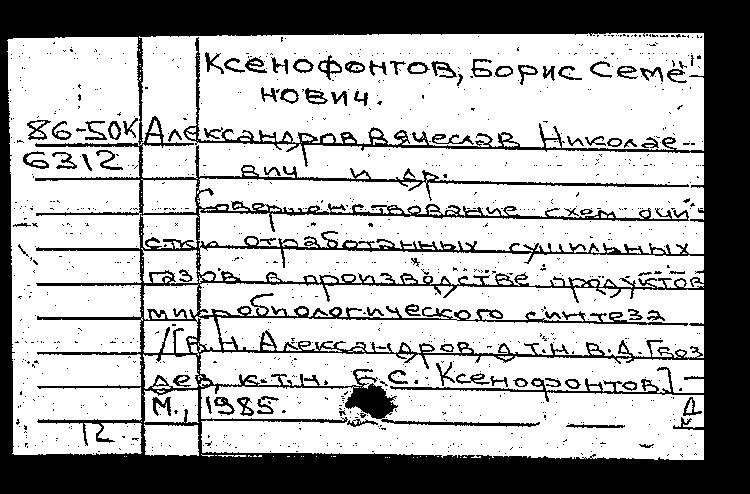 Ксенофонтов, Борис Семе-
нович.
86-50К Александров, Вячеслав Николае-
6312 вич и др.
Совершенствование схем очи-
стки отработанных сушильных
газов в производстве продуктов
микробиологического синтеза
/[В.Н. Александров, д.т.н. В.Д. Гвоз
дев, к.т.н. Б.С. Ксенофонтов].-
М., 1985. Д
12